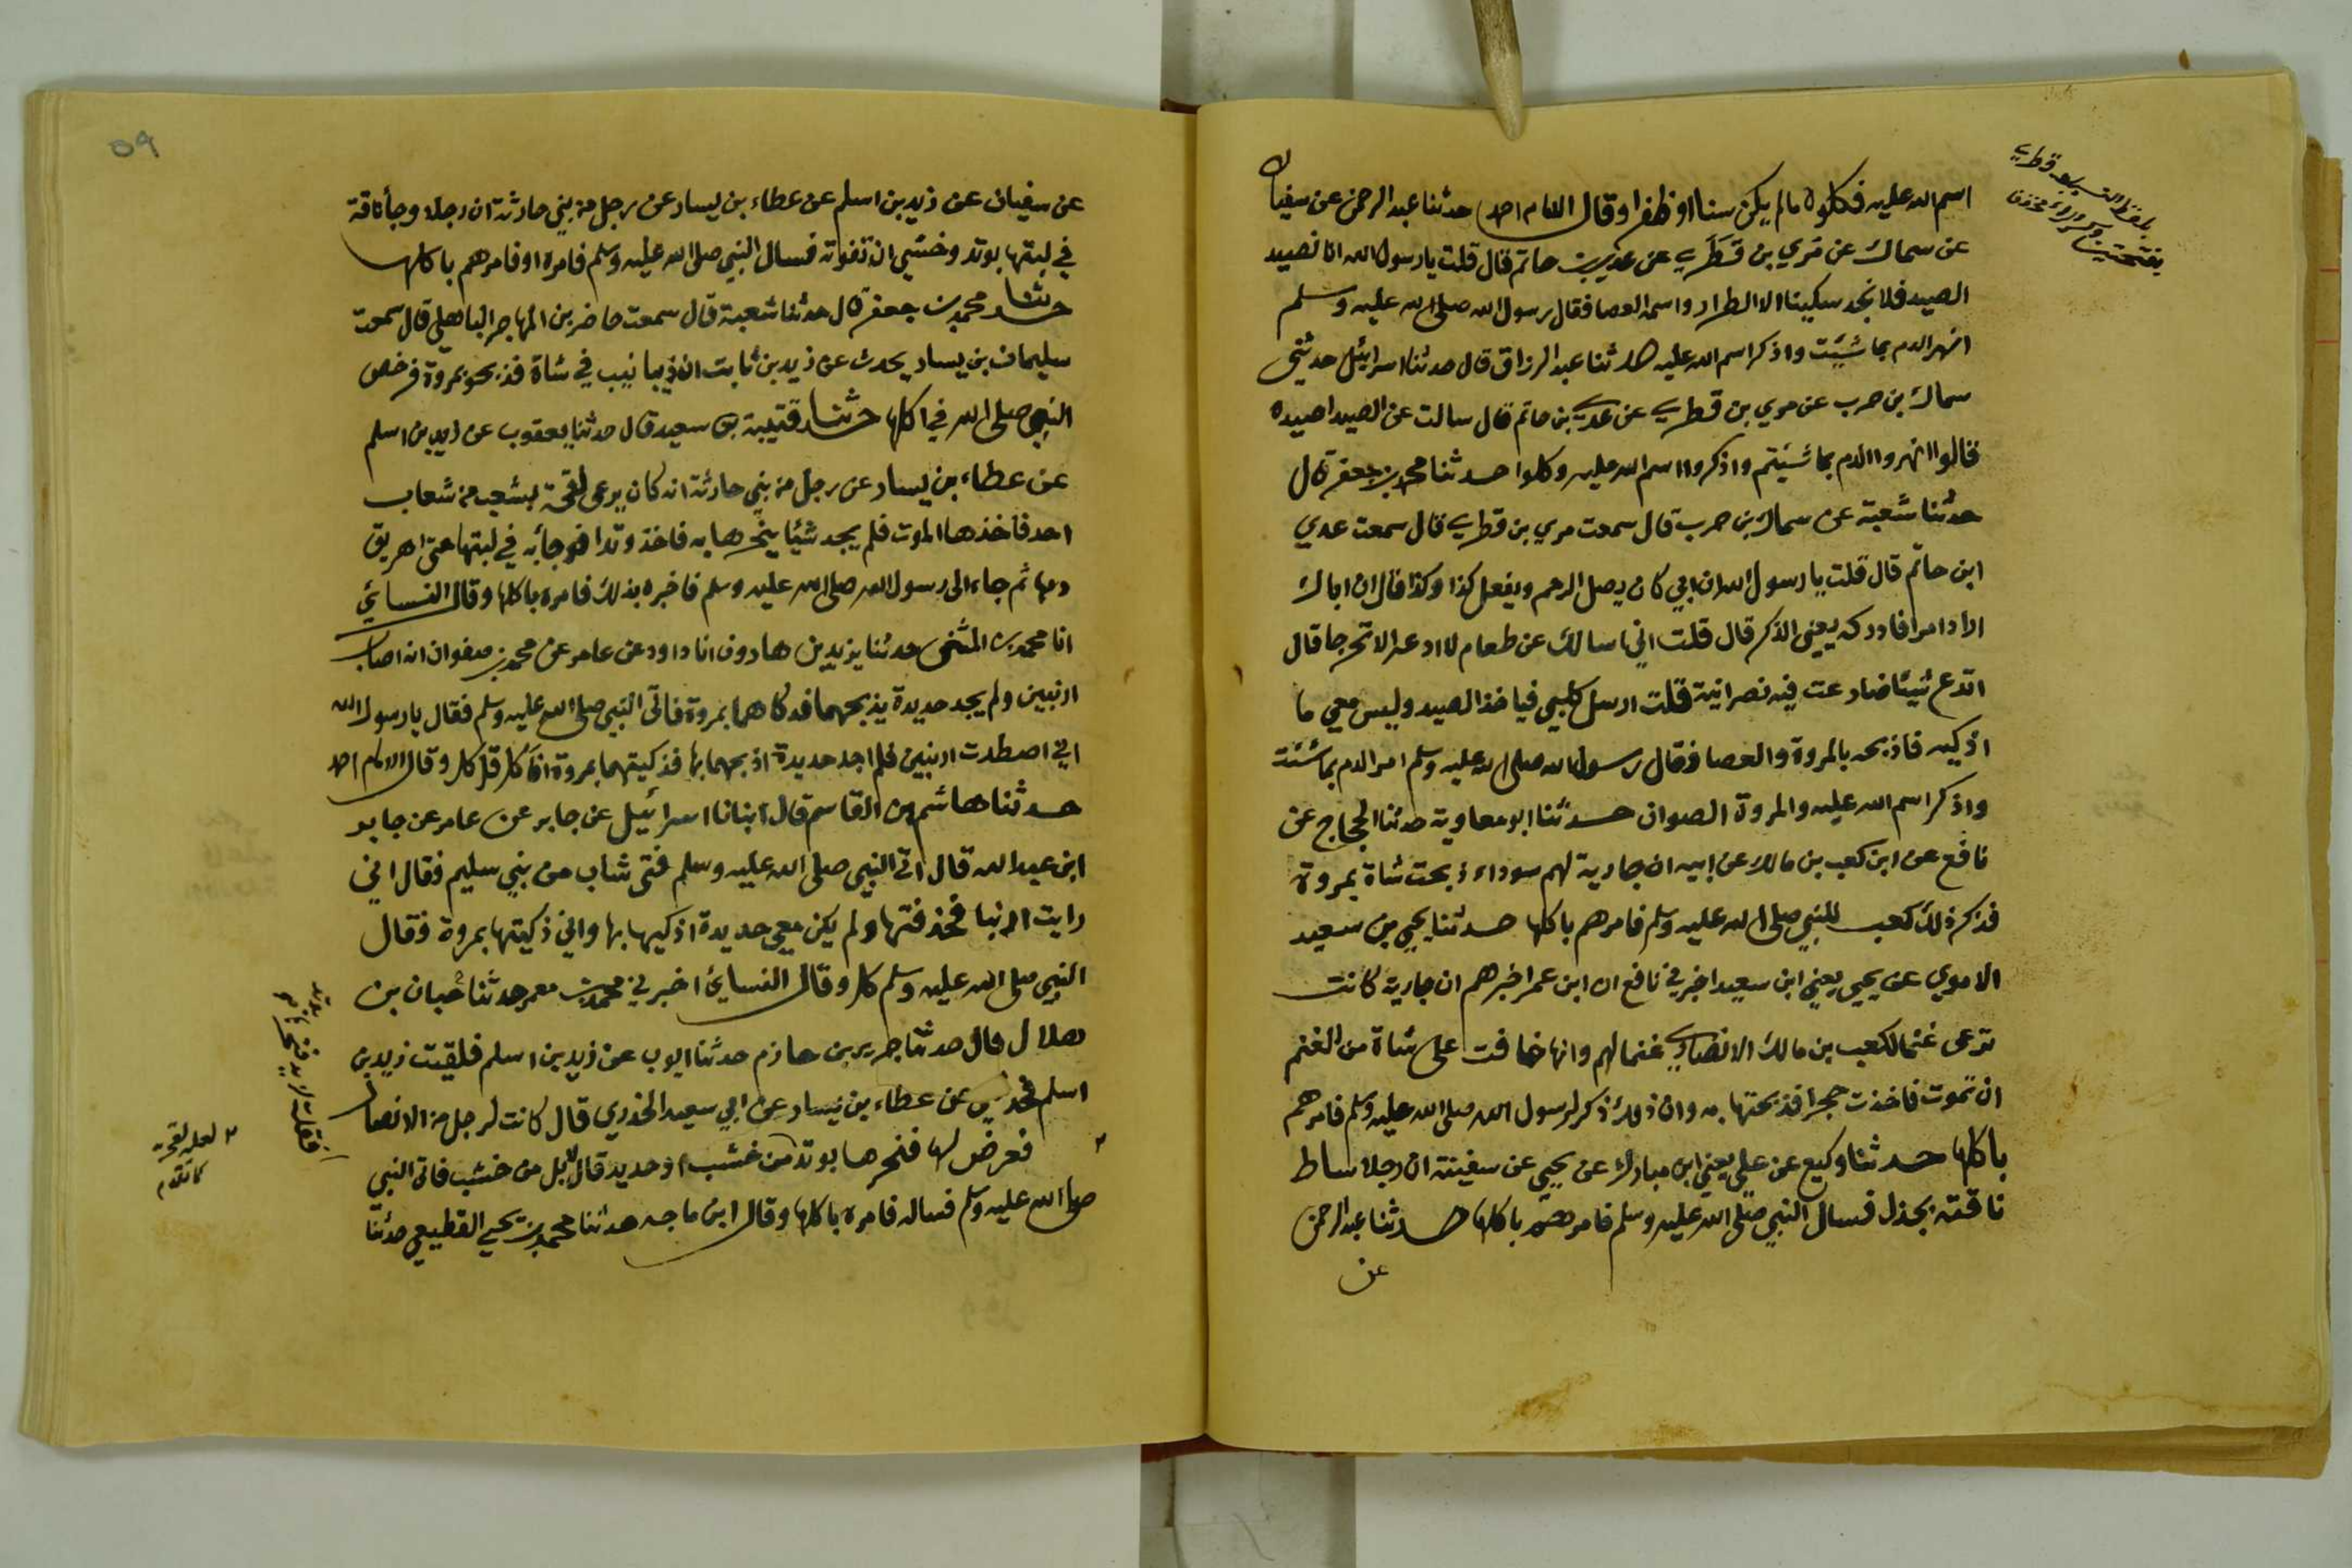 اسم الله عليه فكلوه مالم يكن سنا او ظفرا وقال الامام احمد حدثنا عبد الرحمن عن سفيان
عن سماك عن مري بن قَطَرِي عن عدي بن حاتم قال قلت يا رسول الله انا نصيد
الصيد فلا نجد سكينا الا الظرار واسمه العصا فقال رسول الله صلى الله عليه وسلم
انهر الدم بما شئت واذكر اسم الله عليه حدثنا عبد الرزاق قال حدثنا اسرائيل حدثني
سماك بن حرب عن مري بن قطري عن عدي بن حاتم قال سالت عن الصيد اصيده
قالوا انهروا الدم بما شئيتم واذكروا اسم الله عليه وكلوا حدثنا محمد بن جعفر قال
حدثنا شعبة عن سماك بن حرب قال سمعت مري بن قطري قال سمعت عدي
ابن حاتم قال قلت يا رسول الله ان ابي كان يصل الرحم ويفعل كذا وكذا قال ان اباك
اراد امرا فادركه يعني الذكر قال قلت اني اسالك عن طعام لا ادعه الا تحرجا قال
لا تدع شيئا ضارعت فيه نصرانية قلت ارسل كلبي فياخذ الصيد وليس معي ما
اذكيه فاذبحه بالمروة والعصا فقال رسول الله صلى الله عليه وسلم امر الدم بما شئت
واذكر اسم الله عليه والمروة الصوان حدثنا ابو معاوية حدثنا الحجاج عن
نافع عن ابن كعب بن مالك عن ابيه ان جارية لهم سوداء ذبحت شاة بمروة
فذكر ذلك كعب للنبي صلى الله عليه وسلم فامرهم باكلها حدثنا يحيى بن سعيد
الاموي عن يحيى يعني ابن سعيد اخبرني نافع ان ابن عمر اخبرهم ان جارية كانت
ترعى غنما لكعب بن مالك الانصاري غنما لهم وانها خافت على شاة من الغنم
ان تموت فاخذت حجرا فذبحتها به وان ذلك ذكر لرسول الله صلى الله عليه وسلم فامرهم
باكلها حدثنا وكيع عن علي يعني ابن مبارك عن يحيى عن سفينة ان رجلا ساط
ناقته بجذل فسال النبي صلى الله عليه وسلم فامرهم باكلها حدثنا عبد الرحمن
عن
٥٩
عن سفيان عن زيد بن اسلم عن عطاء بن يسار عن رجل من بني حارثة ان رجلا وجأ ناقة
في لبتها بوتد وخشي ان تفوته فسال النبي صلى الله عليه وسلم فامره او فامرهم باكلها
حدثنا محمد بن جعفر قال حدثنا شعبة قال سمعت حاضر بن المهاجر الباهلي قال سمعت
سليمان بن يسار يحدث عن زيد بن ثابت ان ذيبا نيب في شاة فذبحو بمروة فرخص
النبي صلى الله في اكلها حدثنا قتيبة بن سعيد قال حدثنا يعقوب عن زيد بن اسلم
عن عطاء بن يسار عن رجل من بني حارثة انه كان يرعى لقحة بشعب من شعاب
احد فاخذها الموت فلم يجد شيئا ينحرها به فاخذ وتدا فوجأ به في لبتها حتى اهريق
دمها ثم جاء الى رسول الله صلى الله عليه وسلم فاخبره بذلك فامره باكلها وقال النسائي
انا محمد بن المثنى حدثنا يزيد بن هارون انا داود عن عامر عن محمد بن صفوان انه اصاب
ارنبين ولم يجد حديدة يذبحهما فذكاهما بمروة فاتى النبي صلى الله عليه وسلم فقال يا رسول الله
اني اصطدت ارنبين فلم اجد حديدة اذبحهما بها فذكيتهما بمروة افآكل قال كل وقال الامام احمد
حدثنا هاشم بن القاسم قال انبانا اسرائيل عن جابر عن عامر عن جابر
ابن عبد الله قال اتى النبي صلى الله عليه وسلم فتى شاب من بني سليم فقال اني
رايت ارنبا فحذفتها ولم يكن معي حديدة اذكيها بها واني ذكيتها بمروة فقال
النبي صلى الله عليه وسلم كل وقال النسائي اخبرني محمد بن معمر حدثنا حبان بن
هلال قال حدثنا جرير بن حازم حدثنا ايوب عن زيد بن اسلم فلقيت زيد بن
اسلم فحدثني عن عطاء بن يسار عن ابي سعيد الخدري قال كانت لرجل من الانصار
فعرض لها فنحرها بوتد من خشب او حديد قال لا بل من خشب فاتى النبي
صلى الله عليه وسلم فساله فامره باكلها وقال ابن ماجه حدثنا محمد بن يحيى القطيعي حدثنا
لعله لقحة
كما تقدم